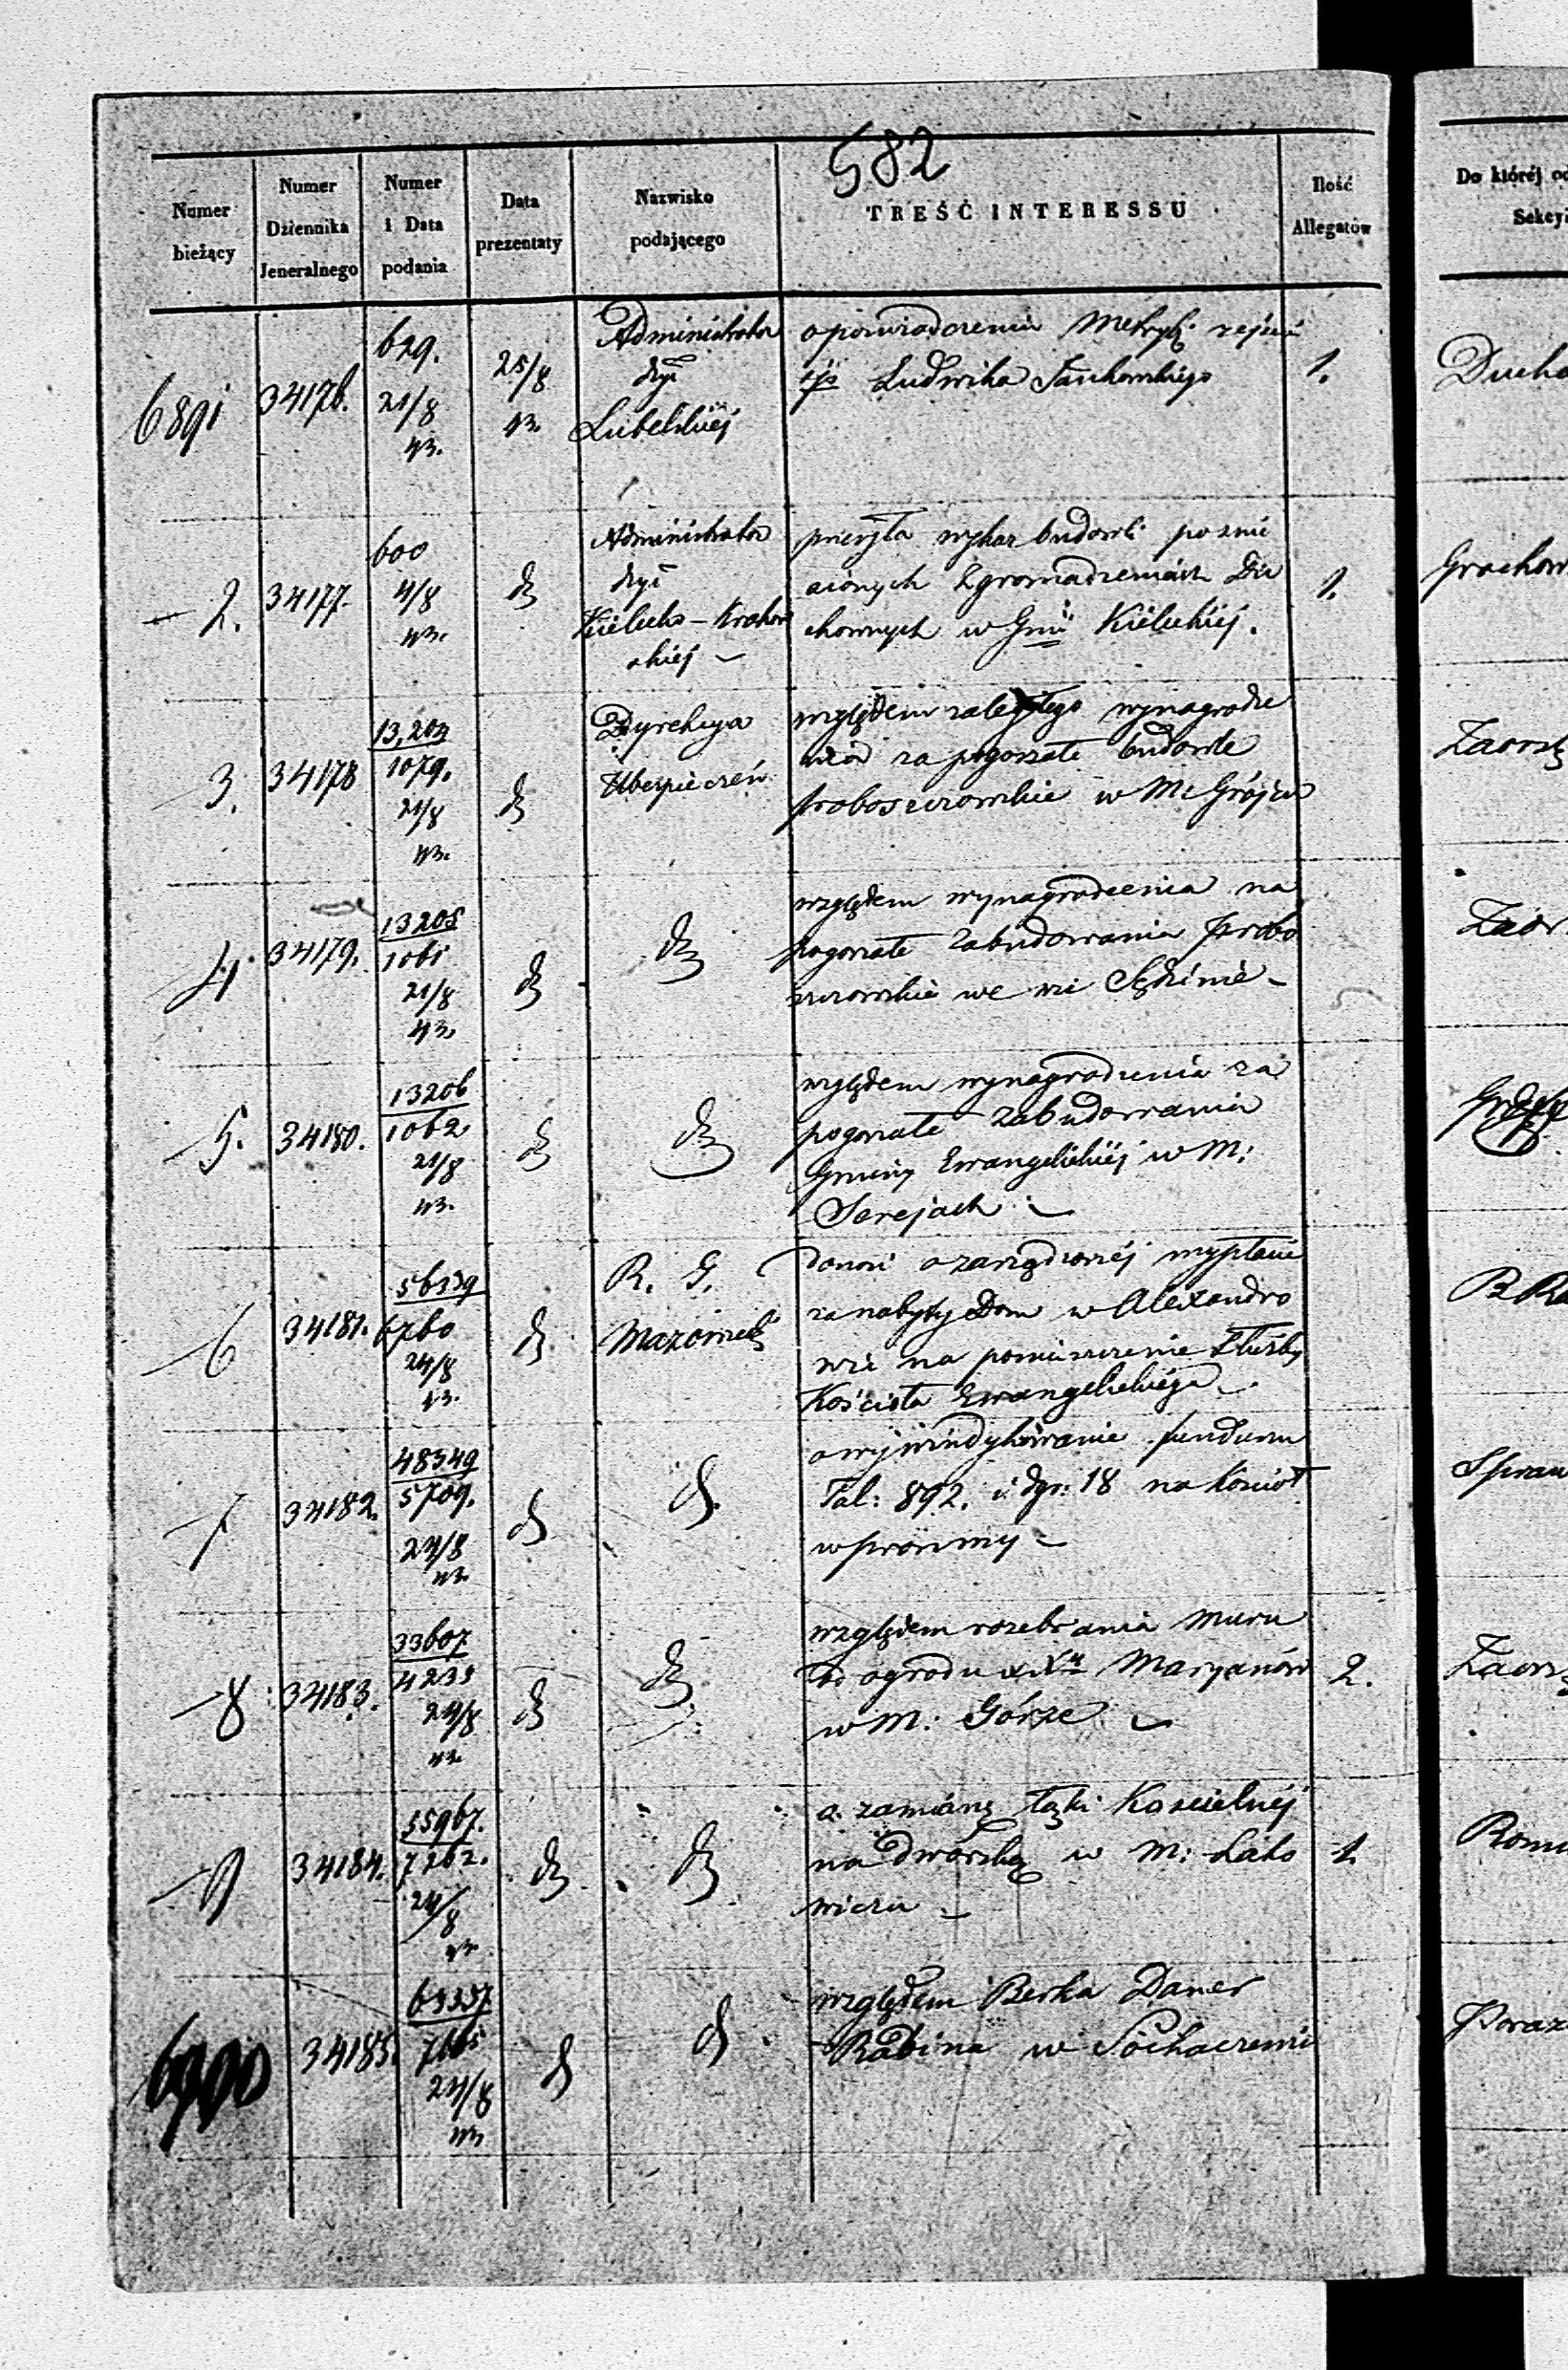 582
Numer bieżący
Numer Dziennika Jeneralnego
Numer i Data podania
Data prezentaty
Nazwisko podającego
TREŚĆ INTERESSU
Ilość Allegatów
Do któréj
Sekcyi
6891
34176.
629.
21/8
43.
25/8
43.
Administrator
dyi
Lubelskiéj
o poświadczenia Metryk: zejścia
Ludwika
1.
2.
34177.
600
4/8
43.
d
Administrator
dyi
Kielecko-Krakow
skiéj
przesyła wykaz budowli po znie
sionych Zgromadzeniach Du
chownych w Gnii Kieleckiéj.
1.
3.
34178
13,204
1079.
21/8
43.
d
Dyrekcya
Ubezpieczeń
względem zaległego wynagrodze
nia za pogorzałe budowle
proboszczowskie w M. Grójcu
4.
34179.
13205
1061
21/8
43.
d
d
względem wynagrodzenia na
pogorzałe zabudowania probo
szczowskie we wsi
5.
34180.
13206
1062
21/8
43.
d
d
względem wynagrodzenia za
pogorzałe zabudowania
Gminy Ewangelickiéj w M:
Serejach
6
34181.
56339
6760
24/8
43.
d
R. G.
Mazowiecki
donosi o zarządzonéj wypłacie
za nabyty Dom w Alexandro
wie na pomieszczenie Służby
Kościoła Ewangelickiego
7
34182.
48349
5709.
24/8
43.
d
d.
o wywindykowanie funduszu
Tal: 892. i dgr: 18 na kościół
8
34183.
33607
4235
24/8
43.
d
d
względem rozebrania Muru
od ogrodu Maryanów
w M: Górze
2.
9
34184.
55967.
7262.
24/8
43.
d
d
o zamianę łąki Kościelnéj
na dworską w M:
1.
6900
34185.
63337
7665
24/8
43
d
d
względem Berka Daner
Rabina w Sochaczewie